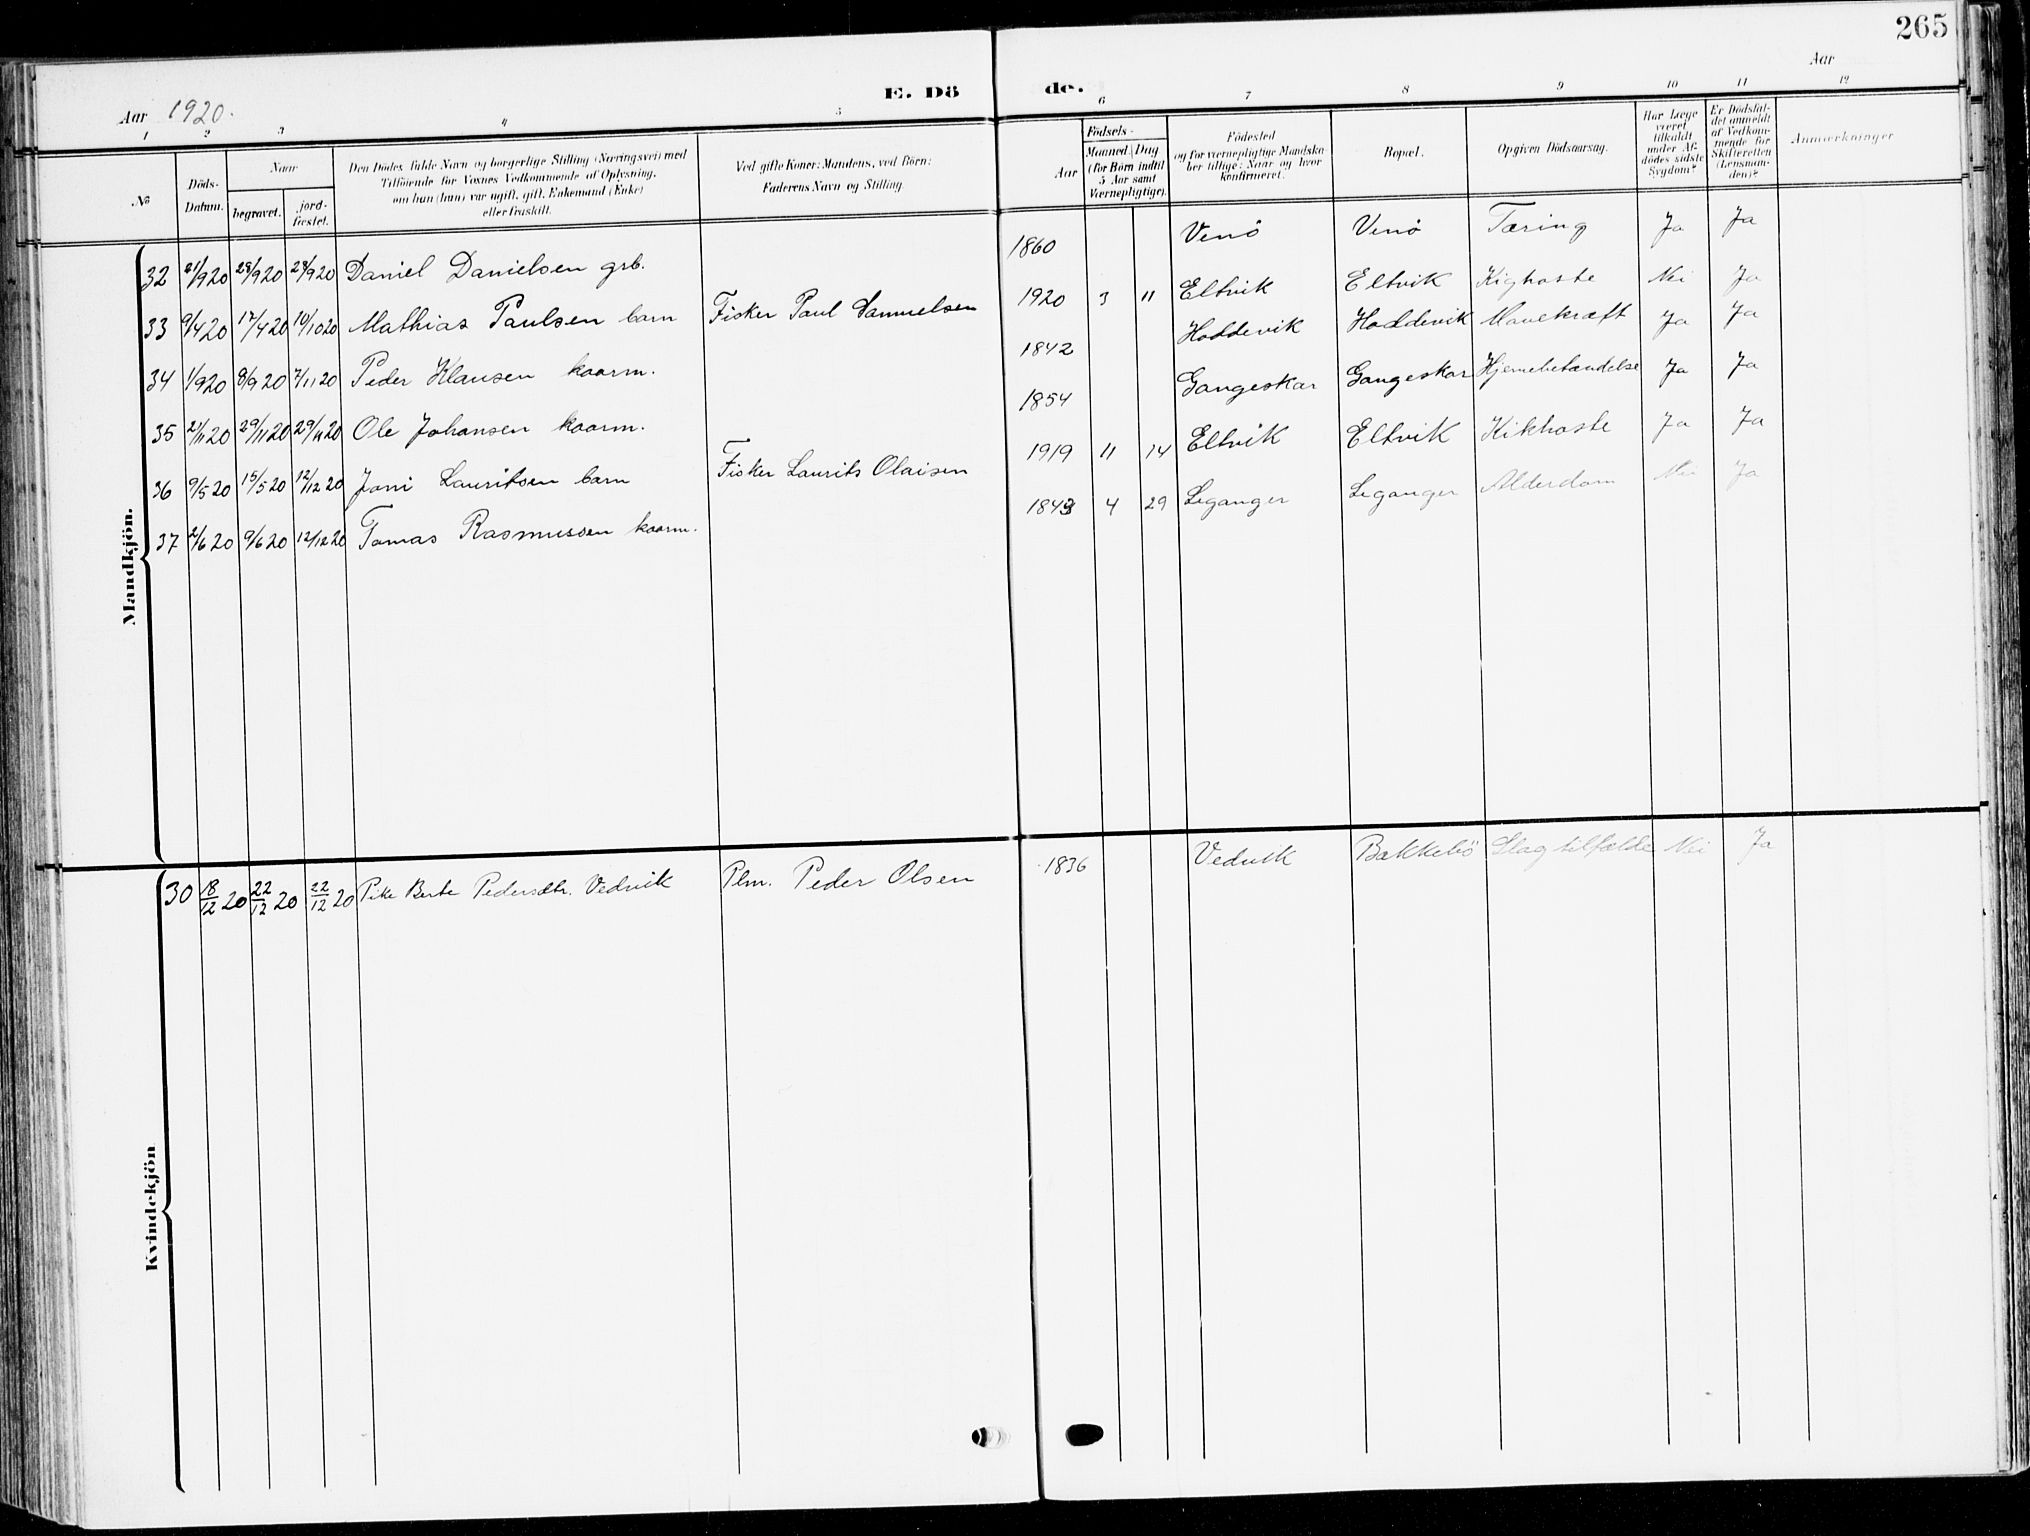 265
Aar 1920.
E. Dö de.
Aar
1 2 3 4 5 6 7 8 9 10 11 12
№
Döds-Datum.
Naar
begravet.
jord-fæstet.
Den Dödes fulde Navn og borgerlige Stilling (Næringsvei) med
Tilföiende for Voxnes Vedkommende af Oplysning,
om han (hun) var ugift, gift, Enkemand (Enke)
eller fraskilt.
Ved gifte Koner: Mandens, ved Börn:
Faderens Navn og Stilling.
Födsels-
Aar
Maaned. Dag
(for Börn indtil
5 Aar samt
Værnepligtige).
Födested
og for værnepligtige Mandska-
ber tillige: Naar og hvor
konfirmeret.
Bopæl.
Opgiven Dödsaarsag.
Har Læge
været
tilkaldt
under Af-
dödes sidste
Sygdom?
Er Dödsfal-
det anmeldt
af Vedkom-
mende for
Skifteretten
(Lensman-
den)?
Anmærkninger
Mandkjön.
32 21/9 20 28/9 20 28/9 20 Daniel Danielsen grb. 1860 Venö Venö Tæring Ja Ja
33 9/4 20 17/4 20 10/10 20 Mathias Paulsen barn Fisker Paul Samuelsen 1920 3 11 Eltvik Eltvik Kighoste Nei Ja
34 1/9 20 8/9 20 7/11 20 Peder Klausen kaarm. 1842 Hoddevik Hoddevik Mavekræft Ja Ja
35 21/11 20 29/11 20 29/11 20 Ole Johansen kaarm. 1854 Gangeskar Gangeskar Hjernebetændelse Ja Ja
36 9/5 20 15/5 20 12/12 20 Joni Lauritsen barn Fisker Laurits Olaisen 1919 11 14 Eltvik Eltvik Kikhoste Ja Ja
37 2/6 20 9/6 20 12/12 20 Tomas Rasmussen kaarm. 1843 4 29 Leganger Leganger Alderdom Nei Ja
Kvindekjön
30 18/12 20 22/12 20 22/12 20 Pike Berte Pedersdtr. Vedvik Plm. Peder Olsen 1836 Vedvik Bakkebö Slagtilfælde Nei Ja